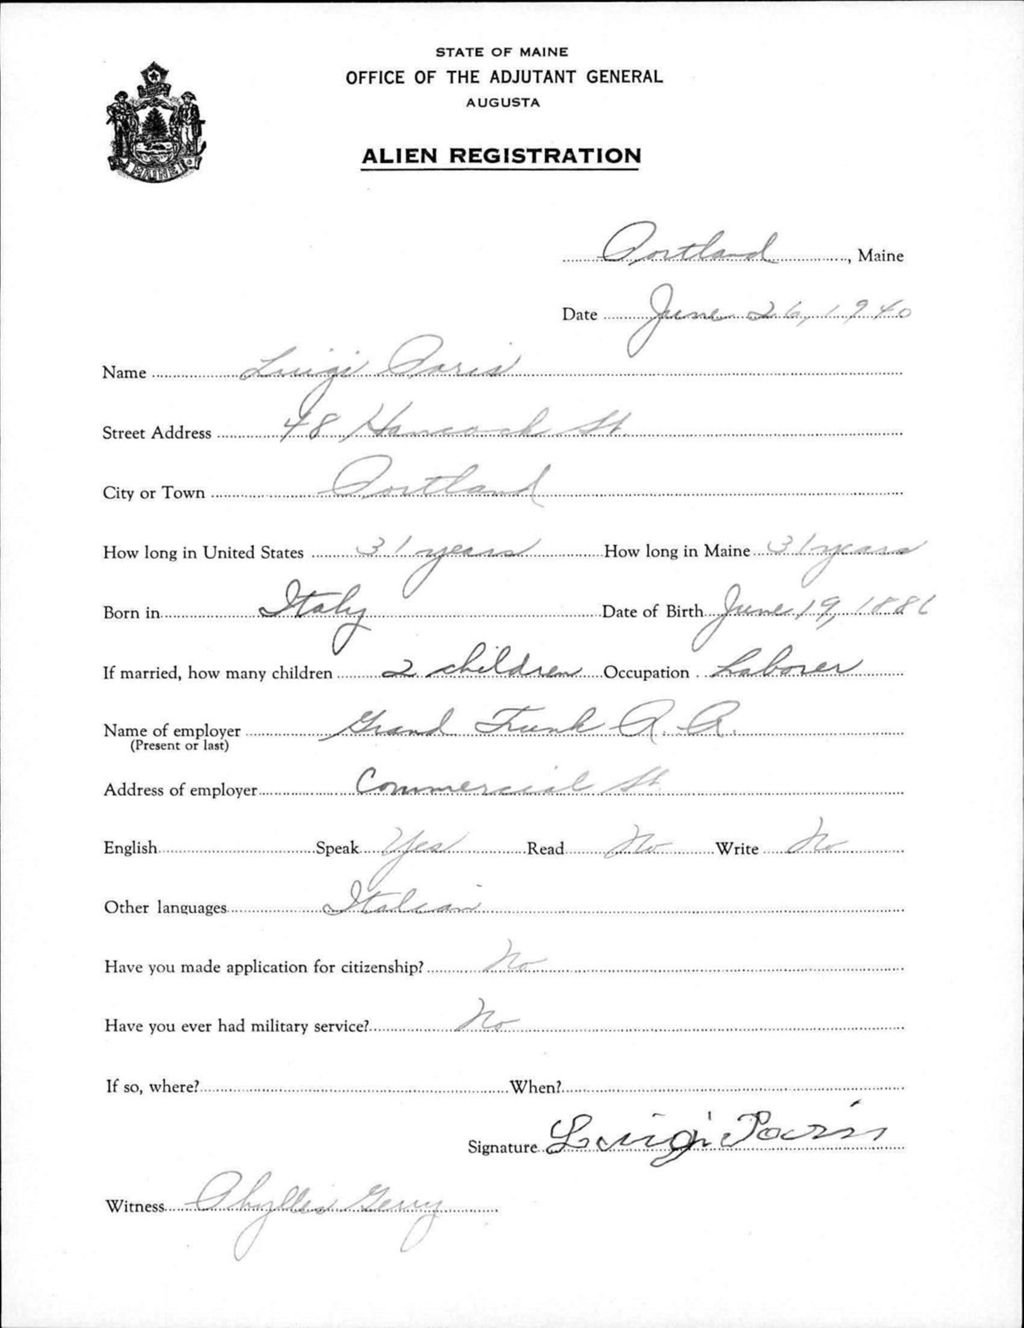 STATE OF MAINE
OFFICE OF THE ADJUTANT GENERAL
AUGUSTA
ALIEN REGISTRATION
MAINE
Portland, Maine
Date June 26, 1940
Name Luigi Paris
Street Address 48 Hancock St.
City or Town Portland
How long in United States 31 years How long in Maine 31 years
Born in Italy Date of Birth June 19, 1886
If married, how many children 2 children Occupation Laborer
Name of employer Grand Trunk R. R.
(Present or last)
Address of employer Commercial St.
English Speak Yes Read No Write No
Other languages Italian
Have you made application for citizenship? No
Have you ever had military service? No
If so, where? When?
Signature Luigi Paris
Witness Phyllis Gerry